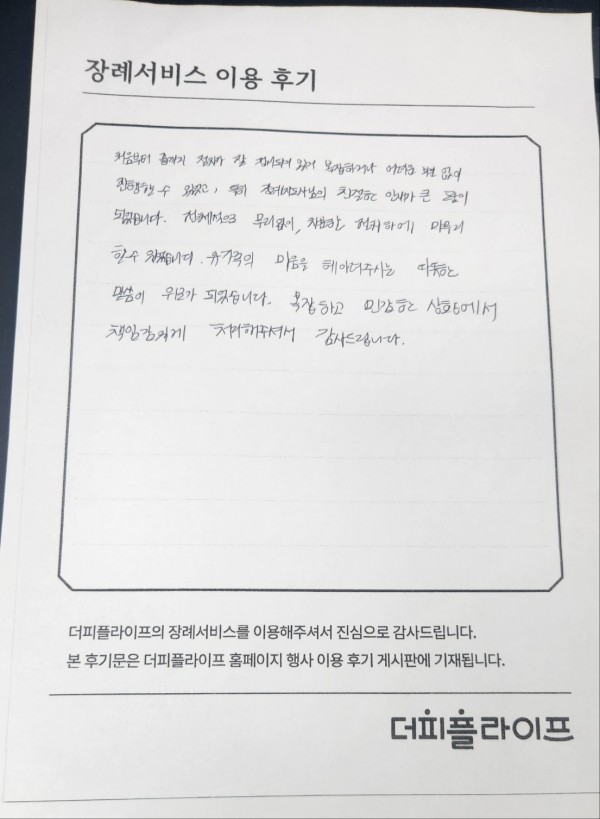 장례서비스 이용 후기
처음부터 끝까지 절차가 잘 정리되어 있어 복잡하거나 어려운 부분 없이
진행할 수 있었고, 특히 장례지도사님의 친절한 안내가 큰 도움이
되었습니다. 전체적으로 무리없이, 차분한 정리하에 마무리
할 수 있었습니다. 유가족의 마음을 헤아려주시는 따뜻한
말씀이 위로가 되었습니다. 복잡하고 민감한 상황에서
책임감있게 처리해주셔서 감사드립니다.
더피플라이프의 장례서비스를 이용해주셔서 진심으로 감사드립니다.
본 후기문은 더피플라이프 홈페이지 행사 이용 후기 게시판에 기재됩니다.
더피플라이프